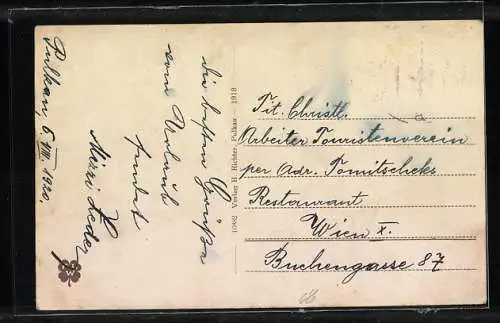 Pulkau, 6/VIII. 1920.
die besten Grüße
vom Urlaub
sendet
Mizzi Feder
1062 Verlag H. Richter, Pulkau — 1919
Tit. Christl.
Arbeiter Touristenverein
per Adr. Tomitscheks
Restaurant
Wien X.
Buchengasse 87